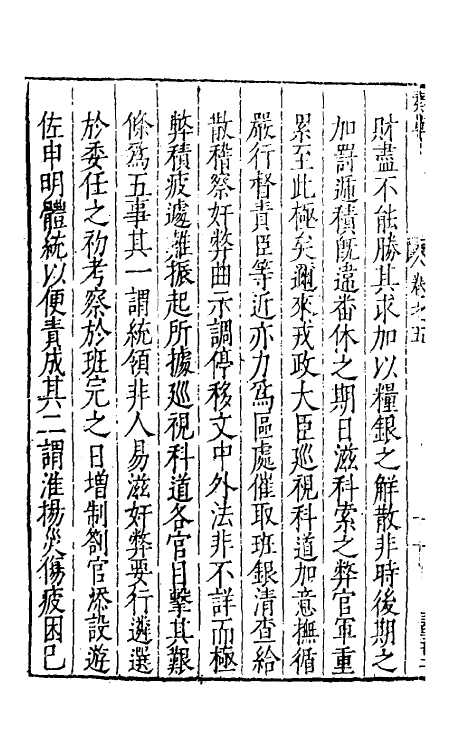 財盡不能勝其求加以糧銀之解散非時後期之
加罰遞積既違番休之期日滋科索之弊官軍重
累至此極矣邇來戎政大臣巡視科道加意撫循
嚴行督責臣等近亦力為區處催取班銀清查給
散稽察奸弊曲示調停移文中外法非不詳而極
弊積疲遽難振起所據巡視科道各官目擊其艱
條為五事其一謂統領非人易滋奸弊要行遴選
於委任之初考察於班完之日增制劄官添設遊
佐申明體統以便責成其二謂淮揚災傷疲困已
卷之五